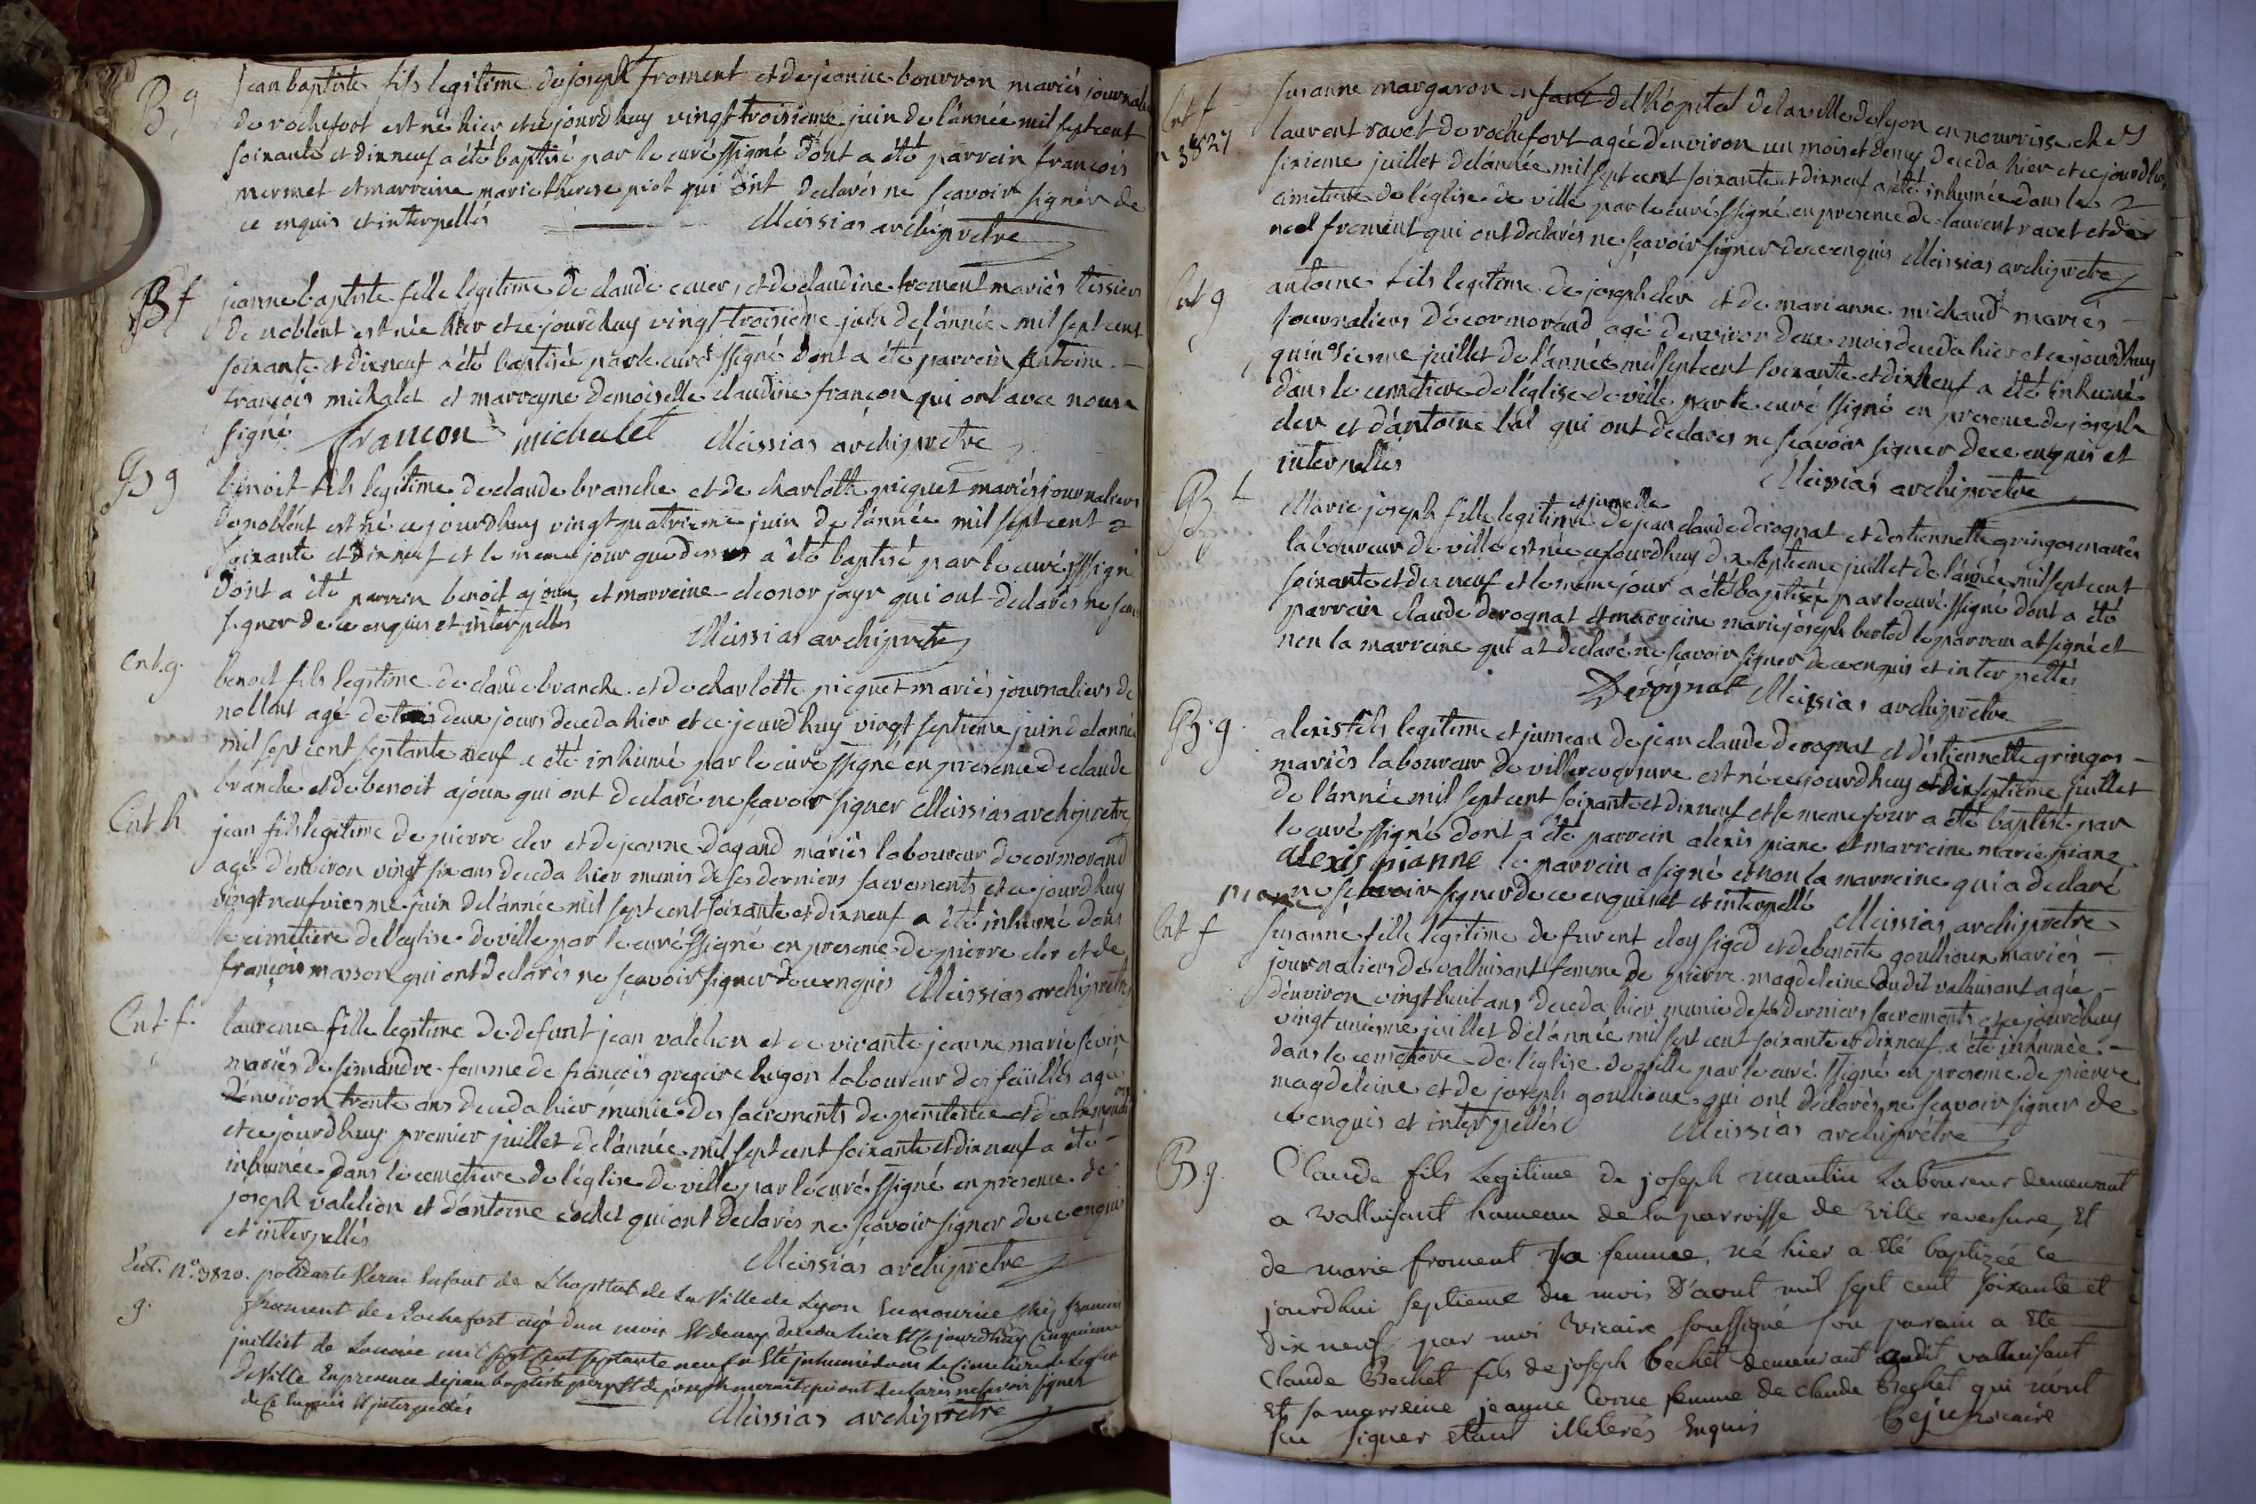 B g
jean baptiste fils legitime de joseph froment et de jeanne bourron mariés journal
de rochefort est né hier et ce jourdhuy vingt troisieme juin de l'année mil sept cent
soixante et dixneuf a été baptisé par le curé ssigné dont a été parrein francois
mermet et marreine marie therese piot qui ont declarés ne scavoir signer de
ce enquis et interpellés Meissias archipretre
B f
jeanne baptiste fille legitime de claude ecuer, et de claudine froment mariés tissiers
de noblent est née hier et ce jourdhuy vingt troisieme juin de l'année mil sept cent
soixante et dixneuf a été baptisée par le curé ssigné dont a été parrein antoine
francois michalet et marreyne demoiselle claudine françon qui ont avec nous
signé françon michalet Meissias archipretre
B g
benoit fils legitime de claude branche et de charlotte picquet mariés journaliers
de noblent est né ce jourdhuy vingt quatrieme juin de l'année mil sept cent
soixante et dixneuf et le meme jour que dessus a été baptisé par le curé ssigné
dont a été parrein benoit ajoux, et marreine eleonor jayr qui ont declarés ne scav
signer de ce enquis et interpellés Meissias archipretre
Ent. g.
benoit fils legitime de claude branche et de charlotte picquet mariés journaliers de
noblent agé de deux jours deceda hier et ce jourdhuy vingt septieme juin de l'année
mil sept cent septante neuf a été inhumé par le curé ssigné en presence de claude
branche et de benoit ajoux qui ont declaré ne scavoir signer Meissias archipretre
Ent. h
jean fils legitime de pierre cler et de jeanne dagand mariés laboureur de cormorand
agé d'environ vingt six ans deceda hier munis de ses derniers sacrements et ce jourdhuy
vingt neufviesme juin de l'année mil sept cent soixante et dixneuf a été inhumé dans
le cimetiere de l'eglise de ville par le curé ssigné en presence de pierre cler et de
françois masson qui ont declarés ne sçavoir signer de ce enquis Meissias archipretre
Ent. f.
laurence fille legitime de defunt jean valelion et de vivante jeanne marie sevin
mariés de simandre femme de francois gregoire hugon laboureur des feuilles agée
d'environ trente ans deceda hier munie des sacrements de penitence et
et ce jourdhuy premier juillet de l'année mil sept cent soixante et dixneuf a été
inhumée dans le cemetiere de l'église de ville par le curé ssigné en presence de
joseph valelion et d'antoine cochet qui ont declarés ne scavoir signer de ce enquis
et interpellés Meissias archipretre
Ent. n.° 3820. g.
policarte enfant de L'hopital de La Ville de Lyon En nourice francois
froment de Rochefort agé d'un mois Et demy deceda hier Et Ce jourdhuy Cinquieme
juillet de L'année mil sept Cent septante neuf a Eté inhumé dans Le Cimetiere de Leglise
de Ville En presence de jean baptiste Et de joseph mermet qui ont declarés ne scavoir signer
de Ce Enquis Et interpellés Meissias archipretre
Ent f
n 3827
susanne margaron enfant del'hôpital delaville de lyon en nourrise chez
laurent ravet de rochefort agée d'environ un mois et demy deceda hier et ce jourdhuy
sixieme juillet de l'année mil sept cent soixante et dixneuf a été inhumée dans le
cimetiere de l'eglise de ville par le curé ssigné en presence de laurent ravet et de
noel froment qui ont declarés ne sçavoir signer de ce enquis Meissias archipretre
Ent g
antoine fils legitime de joseph cler et de marianne michaud mariés
journaliers de cormorand agé d'environ deux mois deceda hier et ce jourdhuy
quinsiesme juillet de l'année mil sept cent soixante et dixneuf a été inhumé
dans le cemetiere de l'église de ville par le curé ssigné en presence de joseph
cler et d'antoine qui ont declarés ne scavoir signer de ce enquis et
interpellés Meissias archipretre
B f
et jumelle
Marie joseph fille legitime de jean claude derognat et d'estiennette gringos mariés
laboureur de ville est née ce jourdhuy dix septieme juillet de l'année mil sept cent
soixante et dix neuf et le meme jour a été baptisée par le curé ssigné dont a été
parrain claude derognat et marreine marie joseph bertod le parrein at signé et
non la marreine qui at declaré ne scavoir signer de ce enquis et interpellés
Derognat Meissias archipretre
B. g.
alexis fils legitime et jumeau de jean claude derognat et d'estiennette gringos
mariés laboureur de villereversure est né ce jourdhuy dix septieme juillet
de l'année mil sept cent soixante et dixneuf et le meme jour a été baptisé par
le curé ssigné dont a été parrein alexis piane et marreine marie piane
alexis pianne le parrein a signé et non la marreine qui a declaré
ne scavoir signer de ce enquis et interpellé Meissias archipretre
Ent f
susanne fille legitime de furent eloy siged et de benoite goullioux mariés
journaliers de valluisant femme de pierre magdeleine dudit valluisant agée
d'environ vingt huit ans deceda hier munie de ses derniers sacrements et ce jourdhuy
vingt unieme juillet de l'année mil sept cent soixante et dixneuf a été inhumée
dans le cemetiere de l'église de ville par le curé ssigné en presence de pierre
magdeleine et de joseph goullioux qui ont declarés ne scavoir signer de
ce enquis et interpellés Meissias archiprétre
B g.
Claude fils Legitime de joseph mantin Laboureur demeurant
a valluisant hameau de la parroisse de ville reversure, Et
de marie froment sa femme, né hier a Eté baptizée ce
jourdhui septieme du mois D'aout mil sept cent soixante et
dix neuf par moi vicaire soussigné son parain a Eté
Claude Bechet fils de joseph bechet demeurant audit valluisant
Et sa marreine jeanne femme de claude Bechet qui n'ont
su signer etant illiterés Enquis Beju vicaire